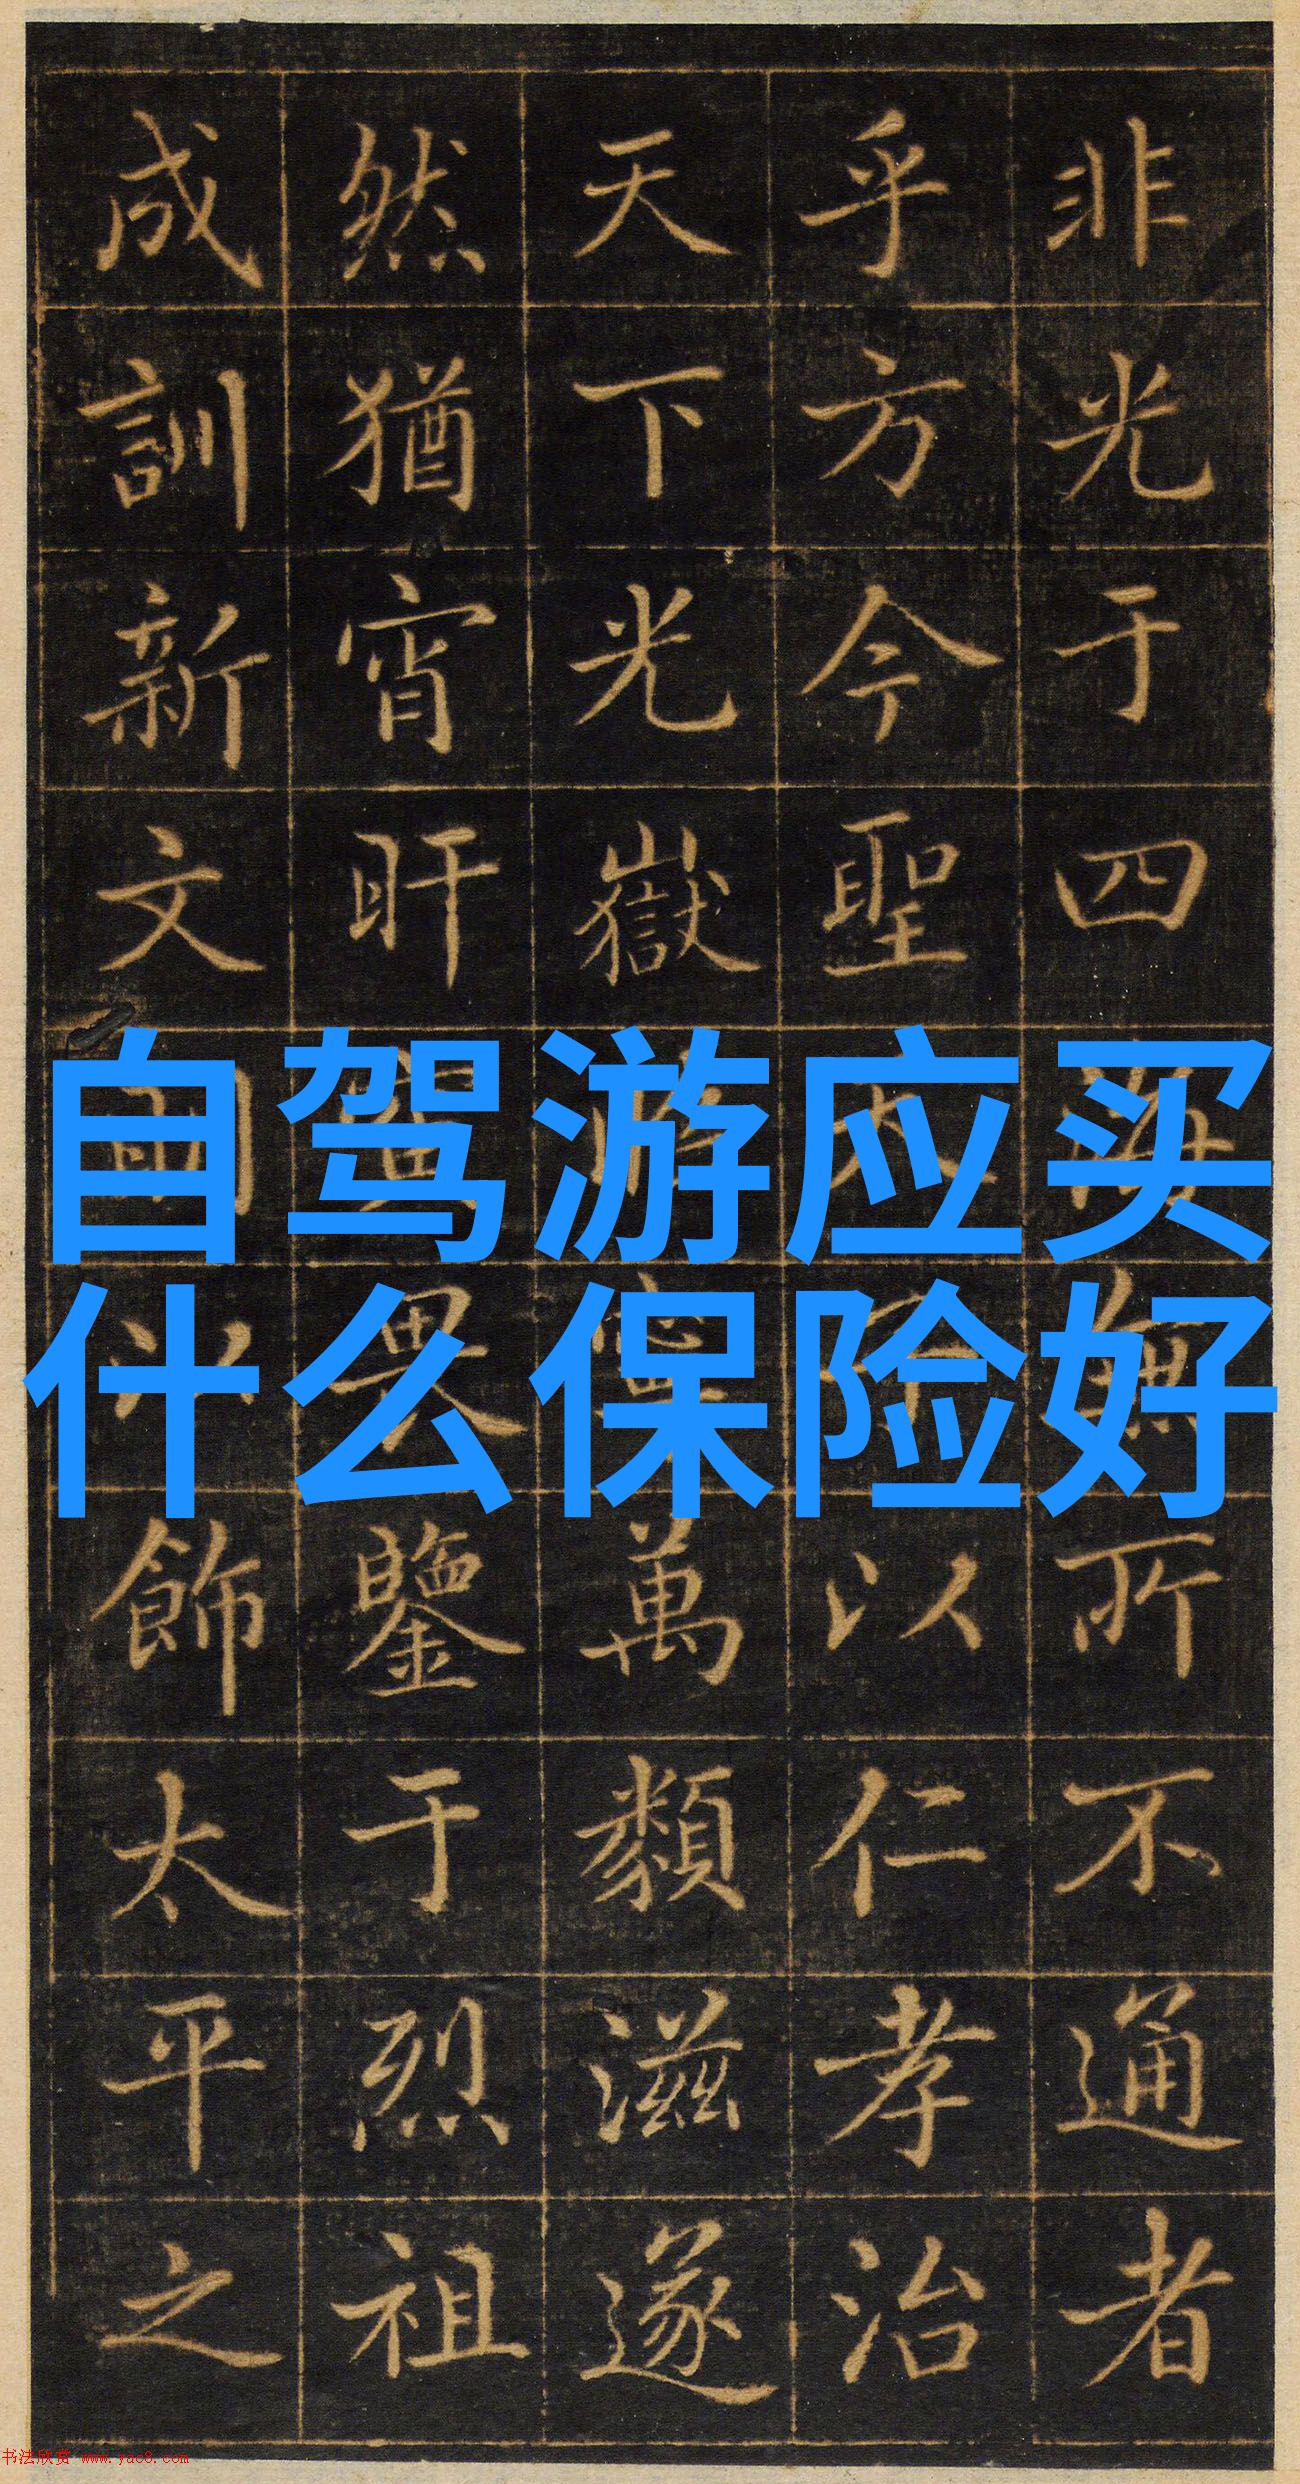 非光于四海無所不通者
乎方今聖以仁孝治
天下光嶽萬類滋遂
然猶宵旰鑒于烈祖
成訓新文以飾太平之
自驾游应买
什么保险好
书法欣赏 www.yac8.com